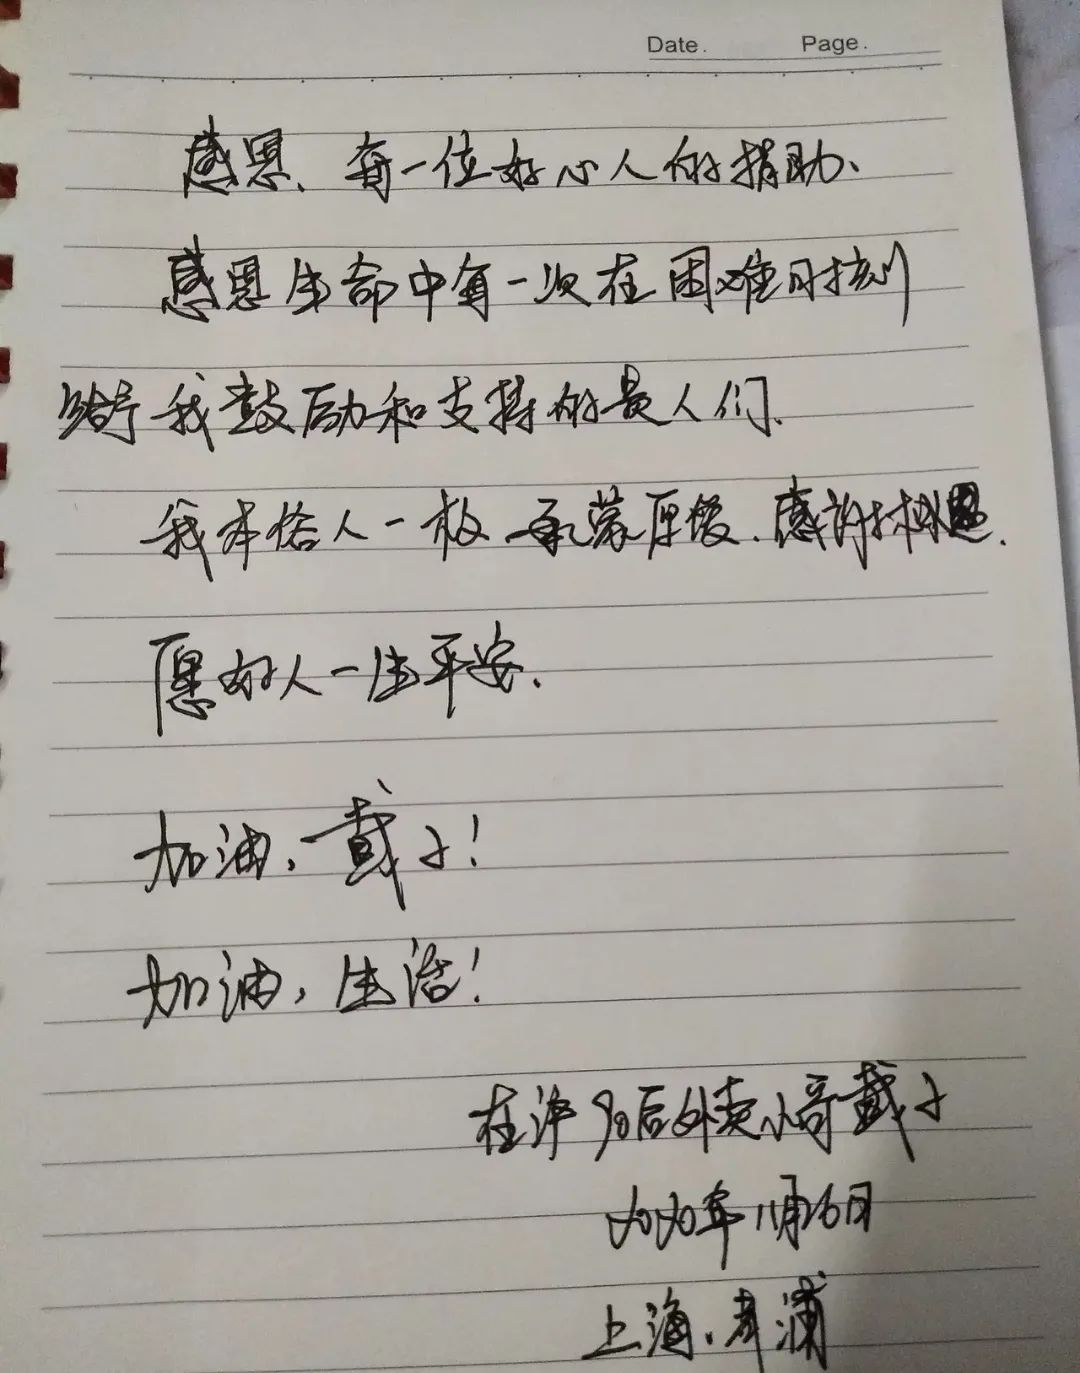 Date. Page.
感恩、每一位好心人的捐助、
感恩生命中每一次在困难时刻
给予我鼓励和支持的贵人们.
我本俗人一枚 承蒙厚爱.感谢
愿好人一生平安.
加油,戴子!
加油,生活!
在沪90后外卖小哥戴子
2020年11月26日
上海.青浦